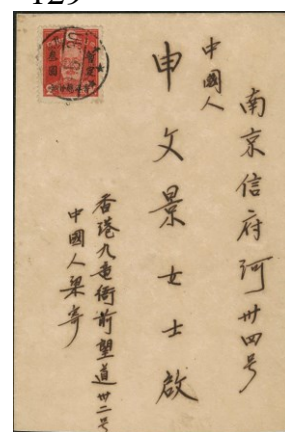 129
南京信府河卅四号
中國人
申文景女士啟
香港九竜衙前塱道卅二号
中國人梁寄